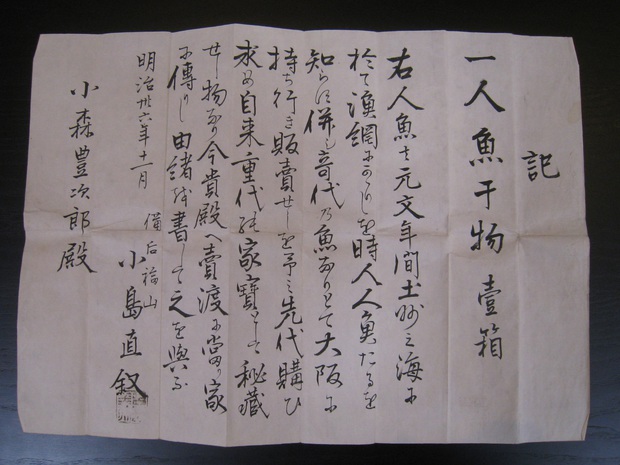 記
一人魚干物壹箱
右人魚ハ元文年間土州之海に
於て漁網にかゝりしを時人人魚たるを
知らす併し奇代乃魚なりとて大阪に
持ち行き販賣せしを予之先代購ひ
求め自来重代の家寳として秘藏
せし物なり今貴殿へ賣渡に當り家
に傳りし由緒を書して之を與ふ
明治卅六年十一月
備后福山
小島直釵
小森豊次郎殿